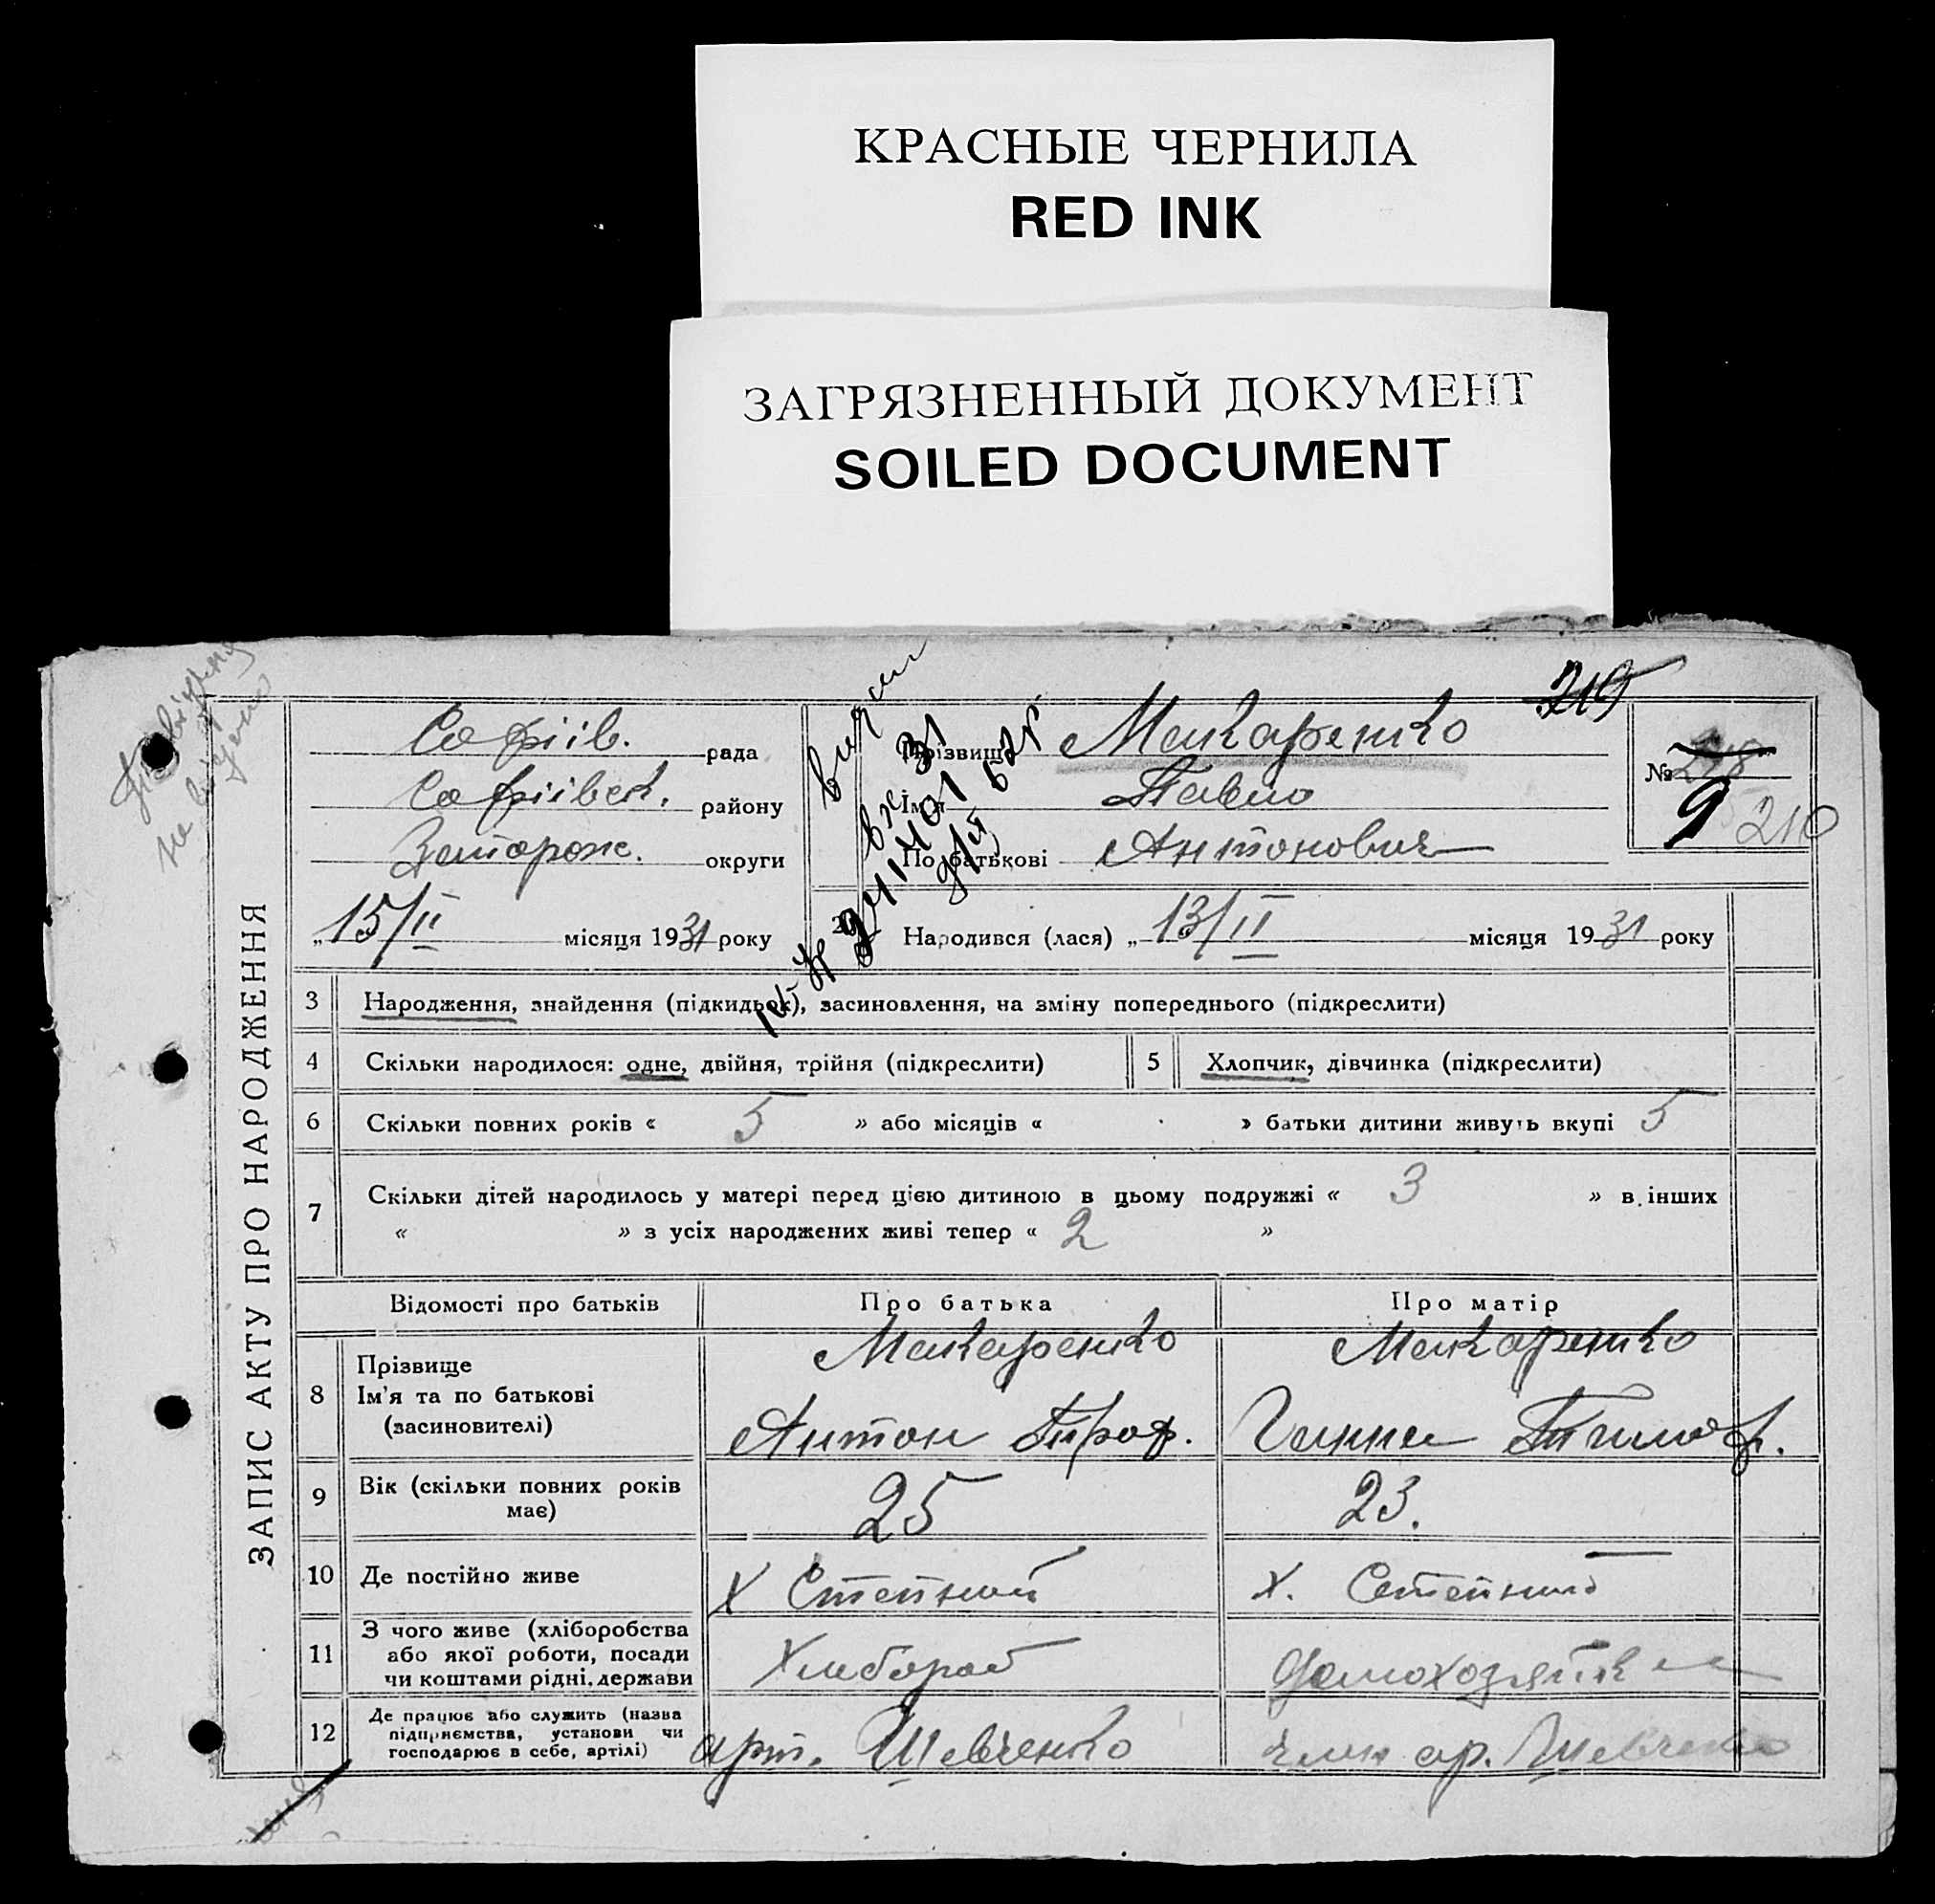 КРАСНЫЕ ЧЕРНИЛА
RED INK
ЗАГРЯЗНЕННЫЙ ДОКУМЕНТ
SOILED DOCUMENT
ЗАПИС АКТУ ПРО НАРОДЖЕННЯ
Софіів. рада
Софіівск. району
округи
„15/II місяця 1931 року
Прізвище Макаренко
Ім'я Павло
По батькові Антонович
215
№ 218
9 210
2 Народився (лася) „13/II місяця 1931 року
3 Народження, знайдення (підкидьок), засиновлення, на зміну попереднього (підкреслити)
4 Скільки народилося: одне, двійня, трійня (підкреслити)
5 Хлопчик, дівчинка (підкреслити)
6 Скільки повних років « 5 » або місяців « » батьки дитини живуть вкупі 5
7 Скільки дітей народилось у матері перед цією дитиною в цьому подружжі « 3 » в інших
« » з усіх народжених живі тепер « 2 »
Відомості про батьків Про батька Про матір
8 Прізвище
Ім'я та по батькові
(засиновителі)
Макаренко
Антон Троф.
Макаренко
Ганна Тимоф.
9 Вік (скільки повних років
має)
25 23.
10 Де постійно живе Х Степний Х. Степний
11 З чого живе (хліборобства
або якої роботи, посади
чи коштами рідні, держави
Хлібороб
домохозяйка
12 Де працює або служить (назва
підприємства, установи чи
господарює в себе, артілі)
арт. Шевченко
член ар. Шевченко